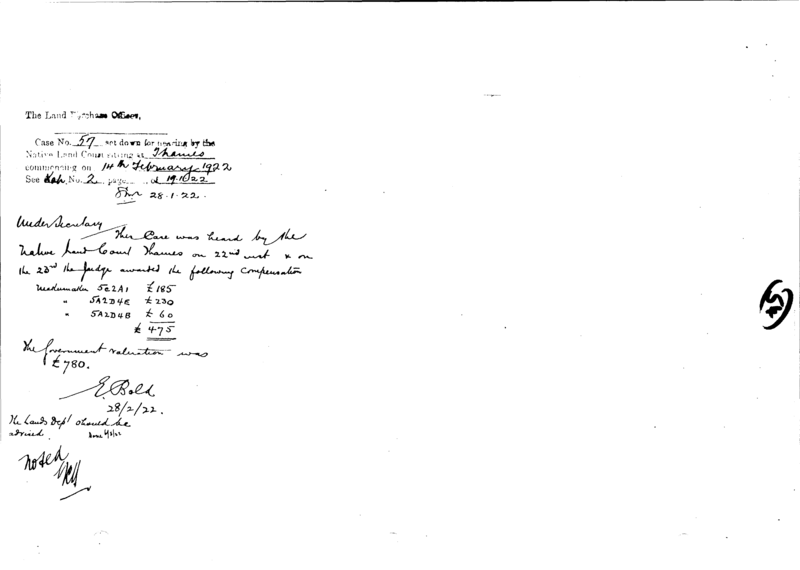 The Land Purchase Officer,
Case No. 57 set down for hearing by the
Native Land Court sitting at Thames
commencing on 14th February 1922
See Kah. No. 2 page of 19.1.22
28.1.22.
Under Secretary
This Case was heard by the
Native Land Court Thames on 22nd inst & on
the 23rd the Judge awarded the following Compensation
5C2A1 £185
" 5A2D4E £230
" 5A2D4B £60
£475
The Government valuation was
£780.
E. Bold
28/2/22.
The Lands Dept should be
advised. Done
Noted